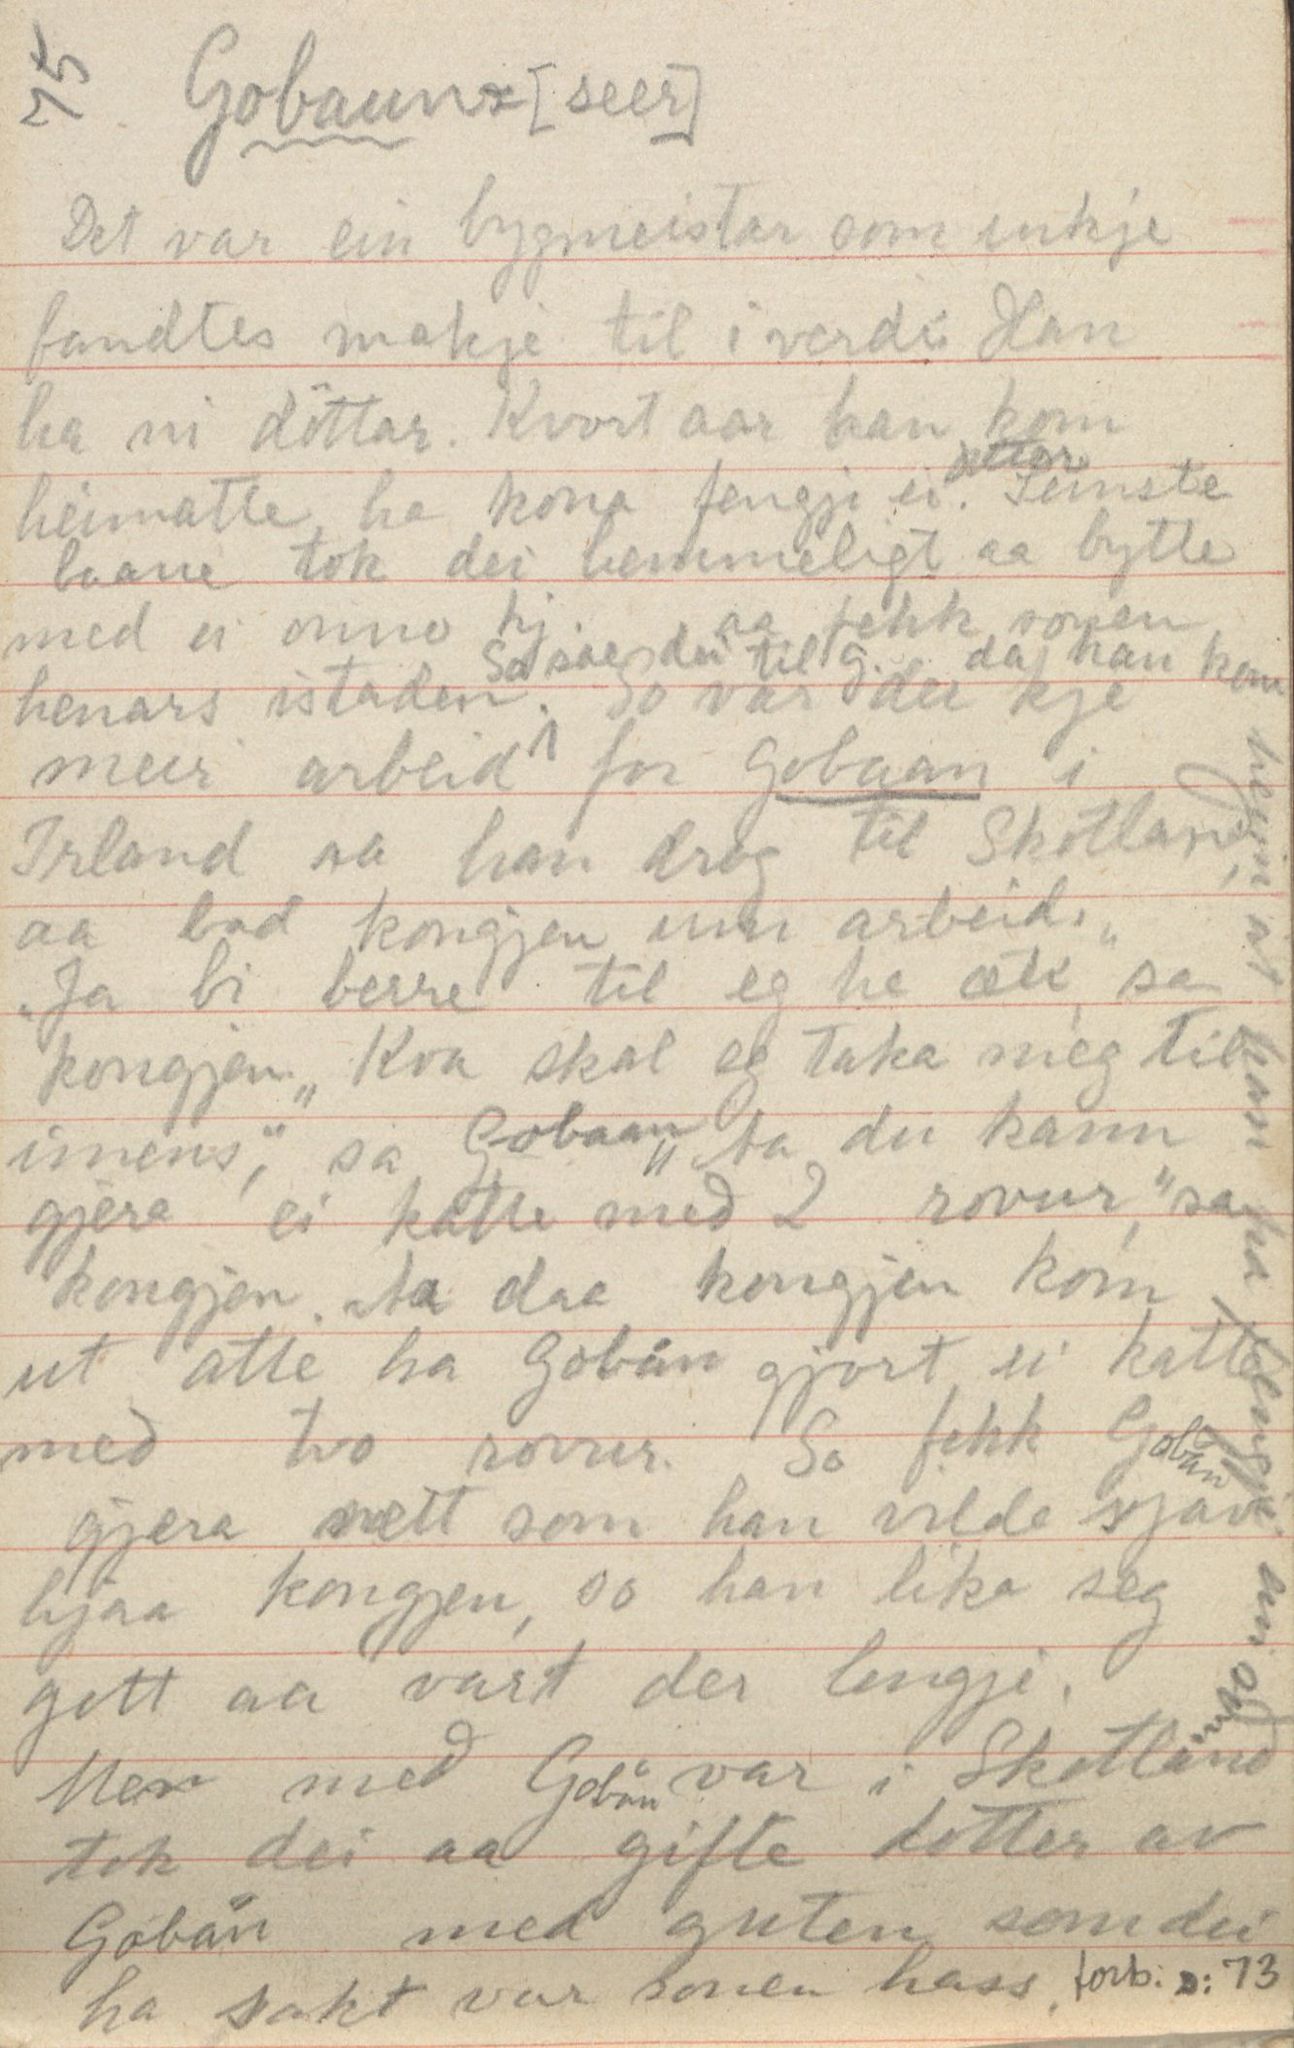 75 Gobaun [seer]
Det var ein bygmeistar som inkje
fandtes makje til i verdi. Han
ha ni döttar. Kvort aar han kom
heimatte, ha kona fengji ei dottar. Seinste
baane tok dei hemmeligt aa bytte
med ei onno kj. aa fekk sonen
henars istaden. So var dei kje
So sae dei til G. da han kom heim at han ha fengje ein son
meir arbeid for Gobaan i
Irland aa han drog til Skotland,
aa bad kongjen um arbeid.
„Ja bi berre til eg he ete", sa
kongjen. „Kva skal eg taka meg til
imens", sa Gobaan „Aa du kann
gjera ei katte med 2 rovur," sa
kongjen. Aa daa kongjen kom
ut atte ha Gobán gjort ei katte
med tvo rovur. So fekk Gobán
gjera nett som han vilde sjav
hjaa kongjen, so han lika seg
gott aa vart der lengji.
Men med Gobán var i Skotland
tok dei aa gifte dotter av
Gobán med guten som dei
ha sakt var sonen hass. forts. s: 73